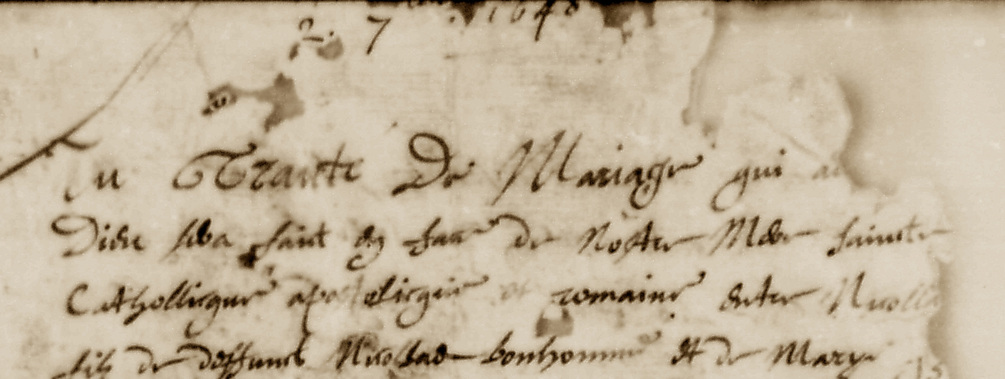 2. 7 1640
Au Traicté De Mariage qui au
Dieu sera faict en face de Nostre Mere saincte
Cathollicque apostolicque et romaine entre Nicollas
filz de deffunct Nicollas bonhomme et de Mary